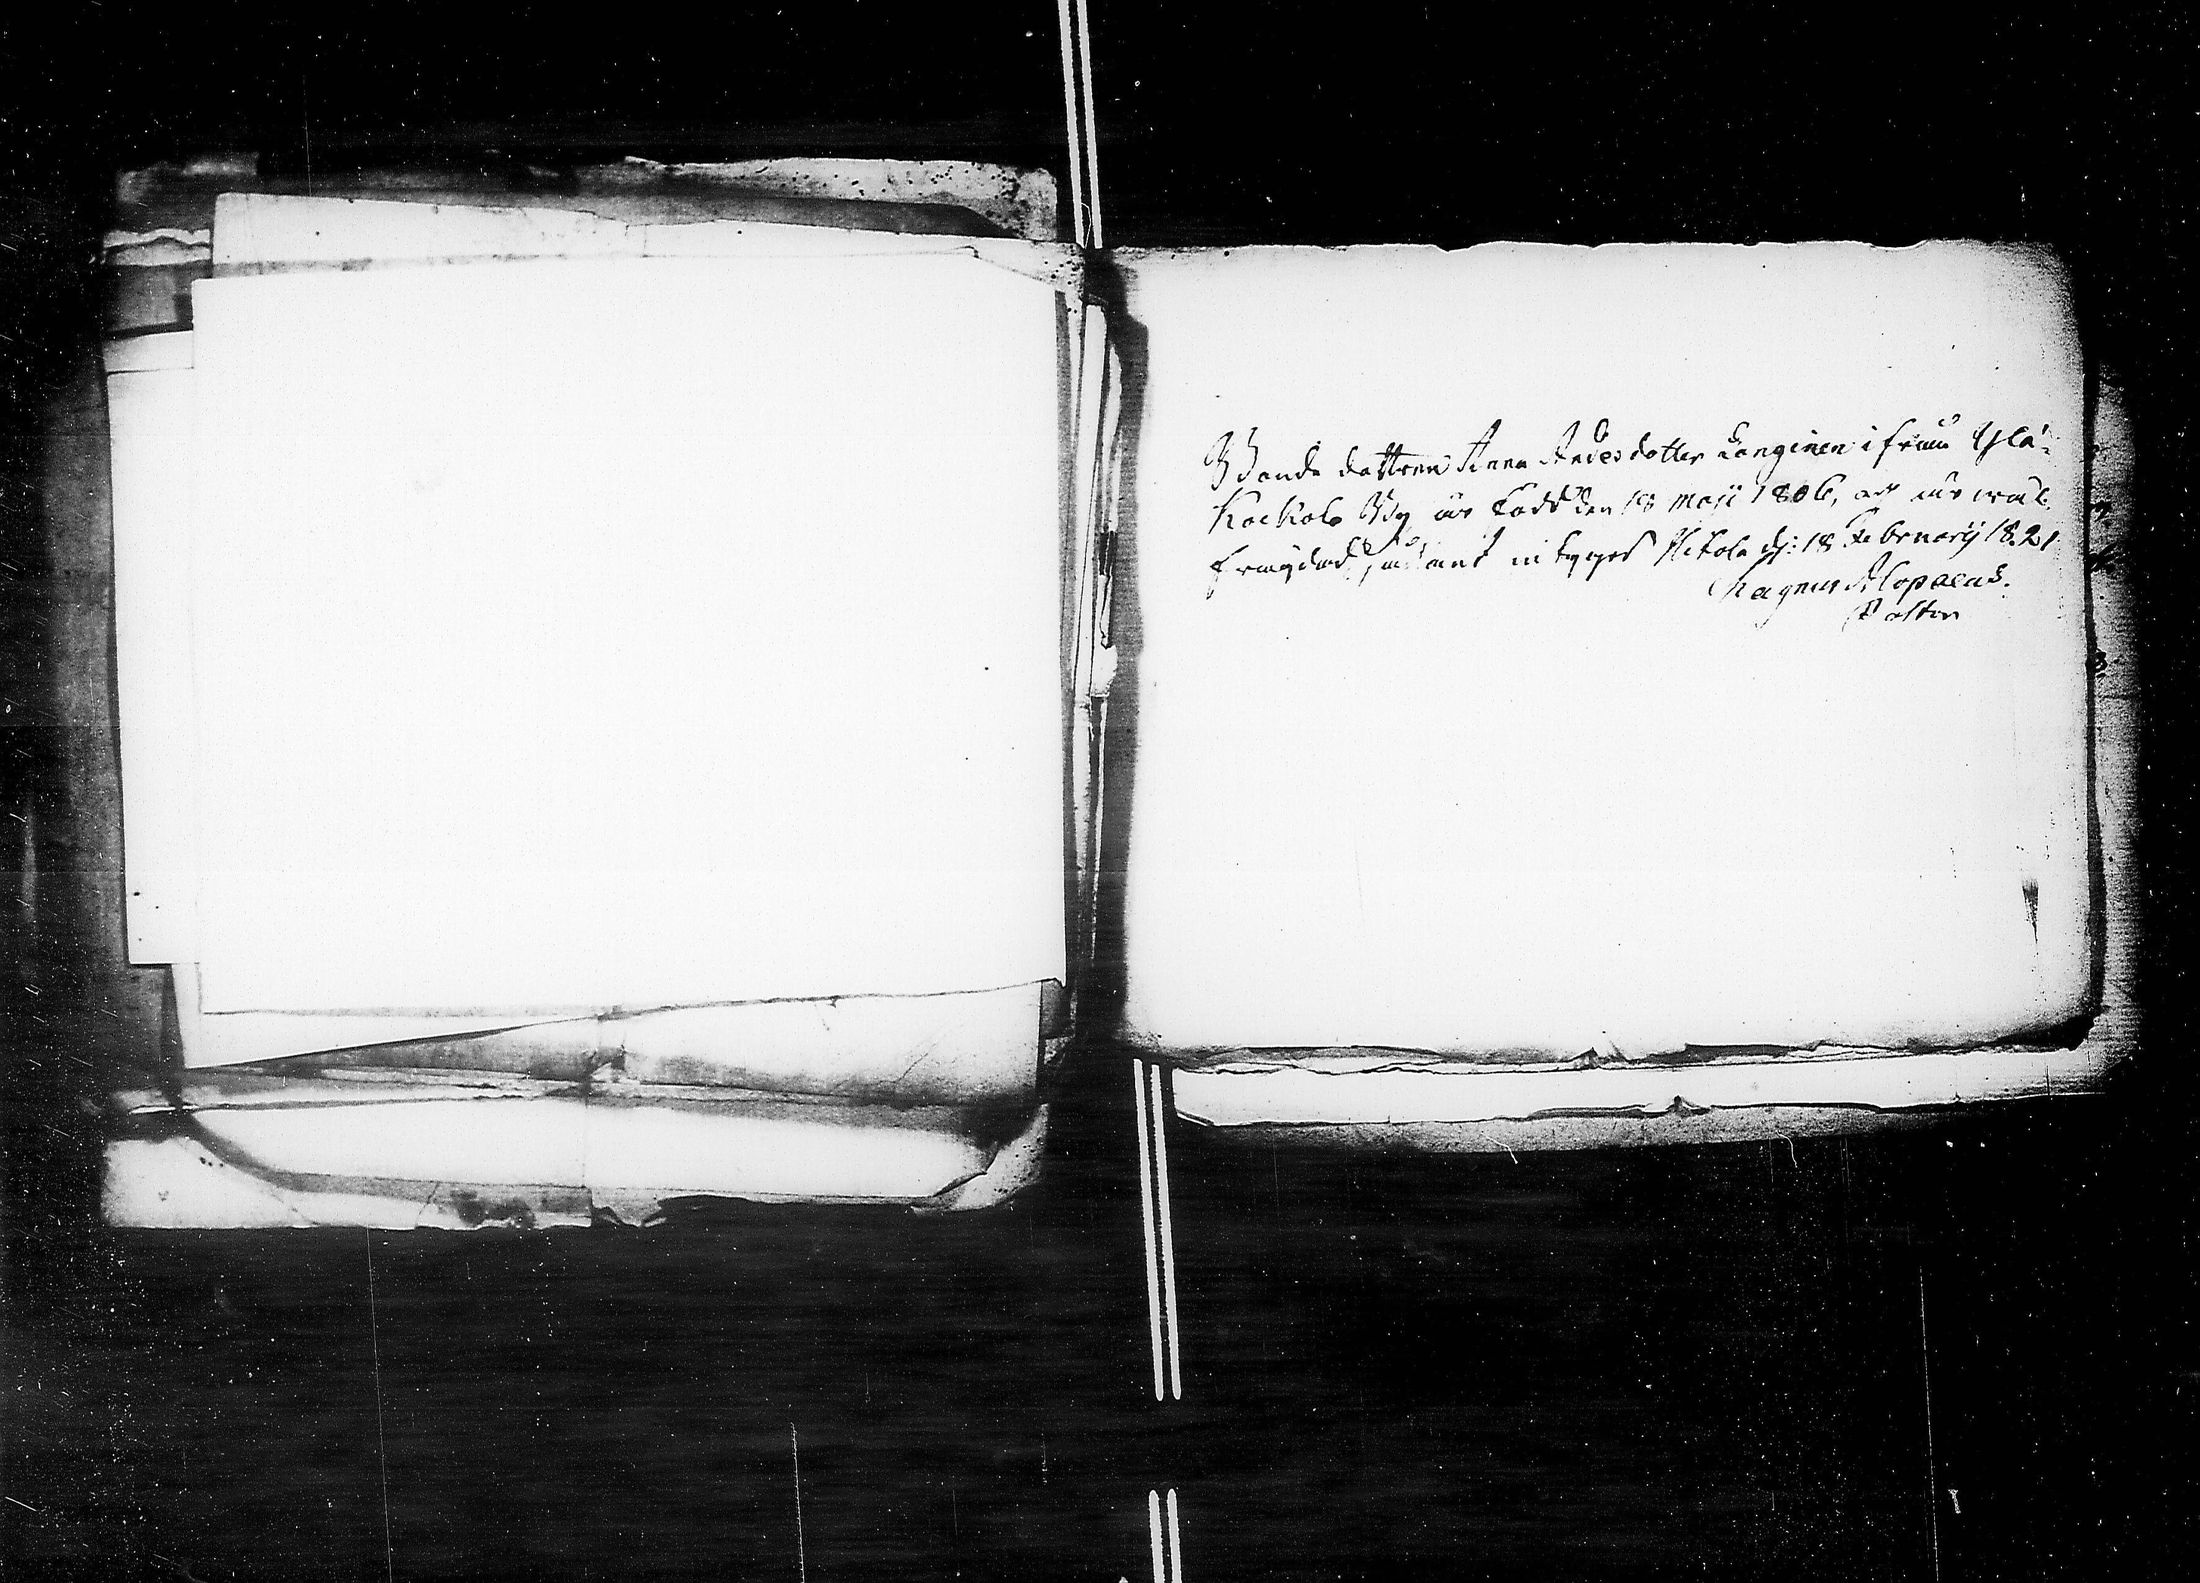 Bonde dottren Anna Andersdotter Langinen ifrån Ylä-
Kockola By är född den 18 Maji 1806, och är wäl
frägdad, sådant intygas Hitola d: 18 Februarij 1821
Magnus Alopaeus.
Pastor